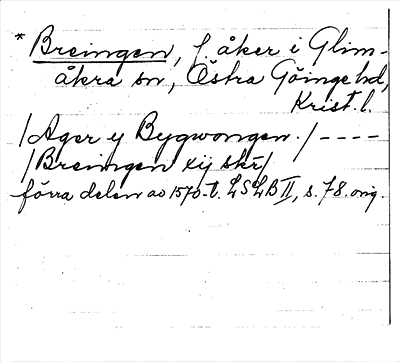 * Breingen, f. åker i Glim-
åkra sn, Östra Göinge hd,
Krist. l.
/Ager y Bygwongen./----
/Breingen xij skr/
förra delen av 1570-t. LSLB II, s. 78. orig.